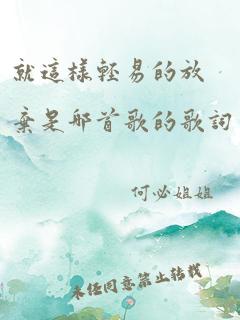 就這樣輕易的放
棄是那首歌的歌詞
何必姐姐
未經同意禁止轉載